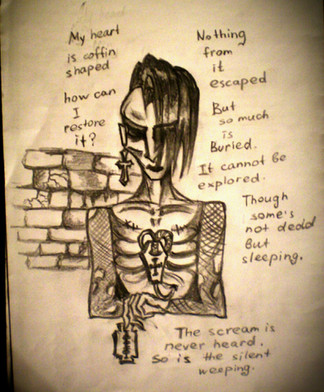 My heart
is coffin
shaped
how can
I
restore
it?
Nothing
from
it
escaped
But
so much
is
Buried.
It cannot be
explored.
Though
some's
not dead
But
sleeping.
The scream is
never heard.
So is the silent
weeping.